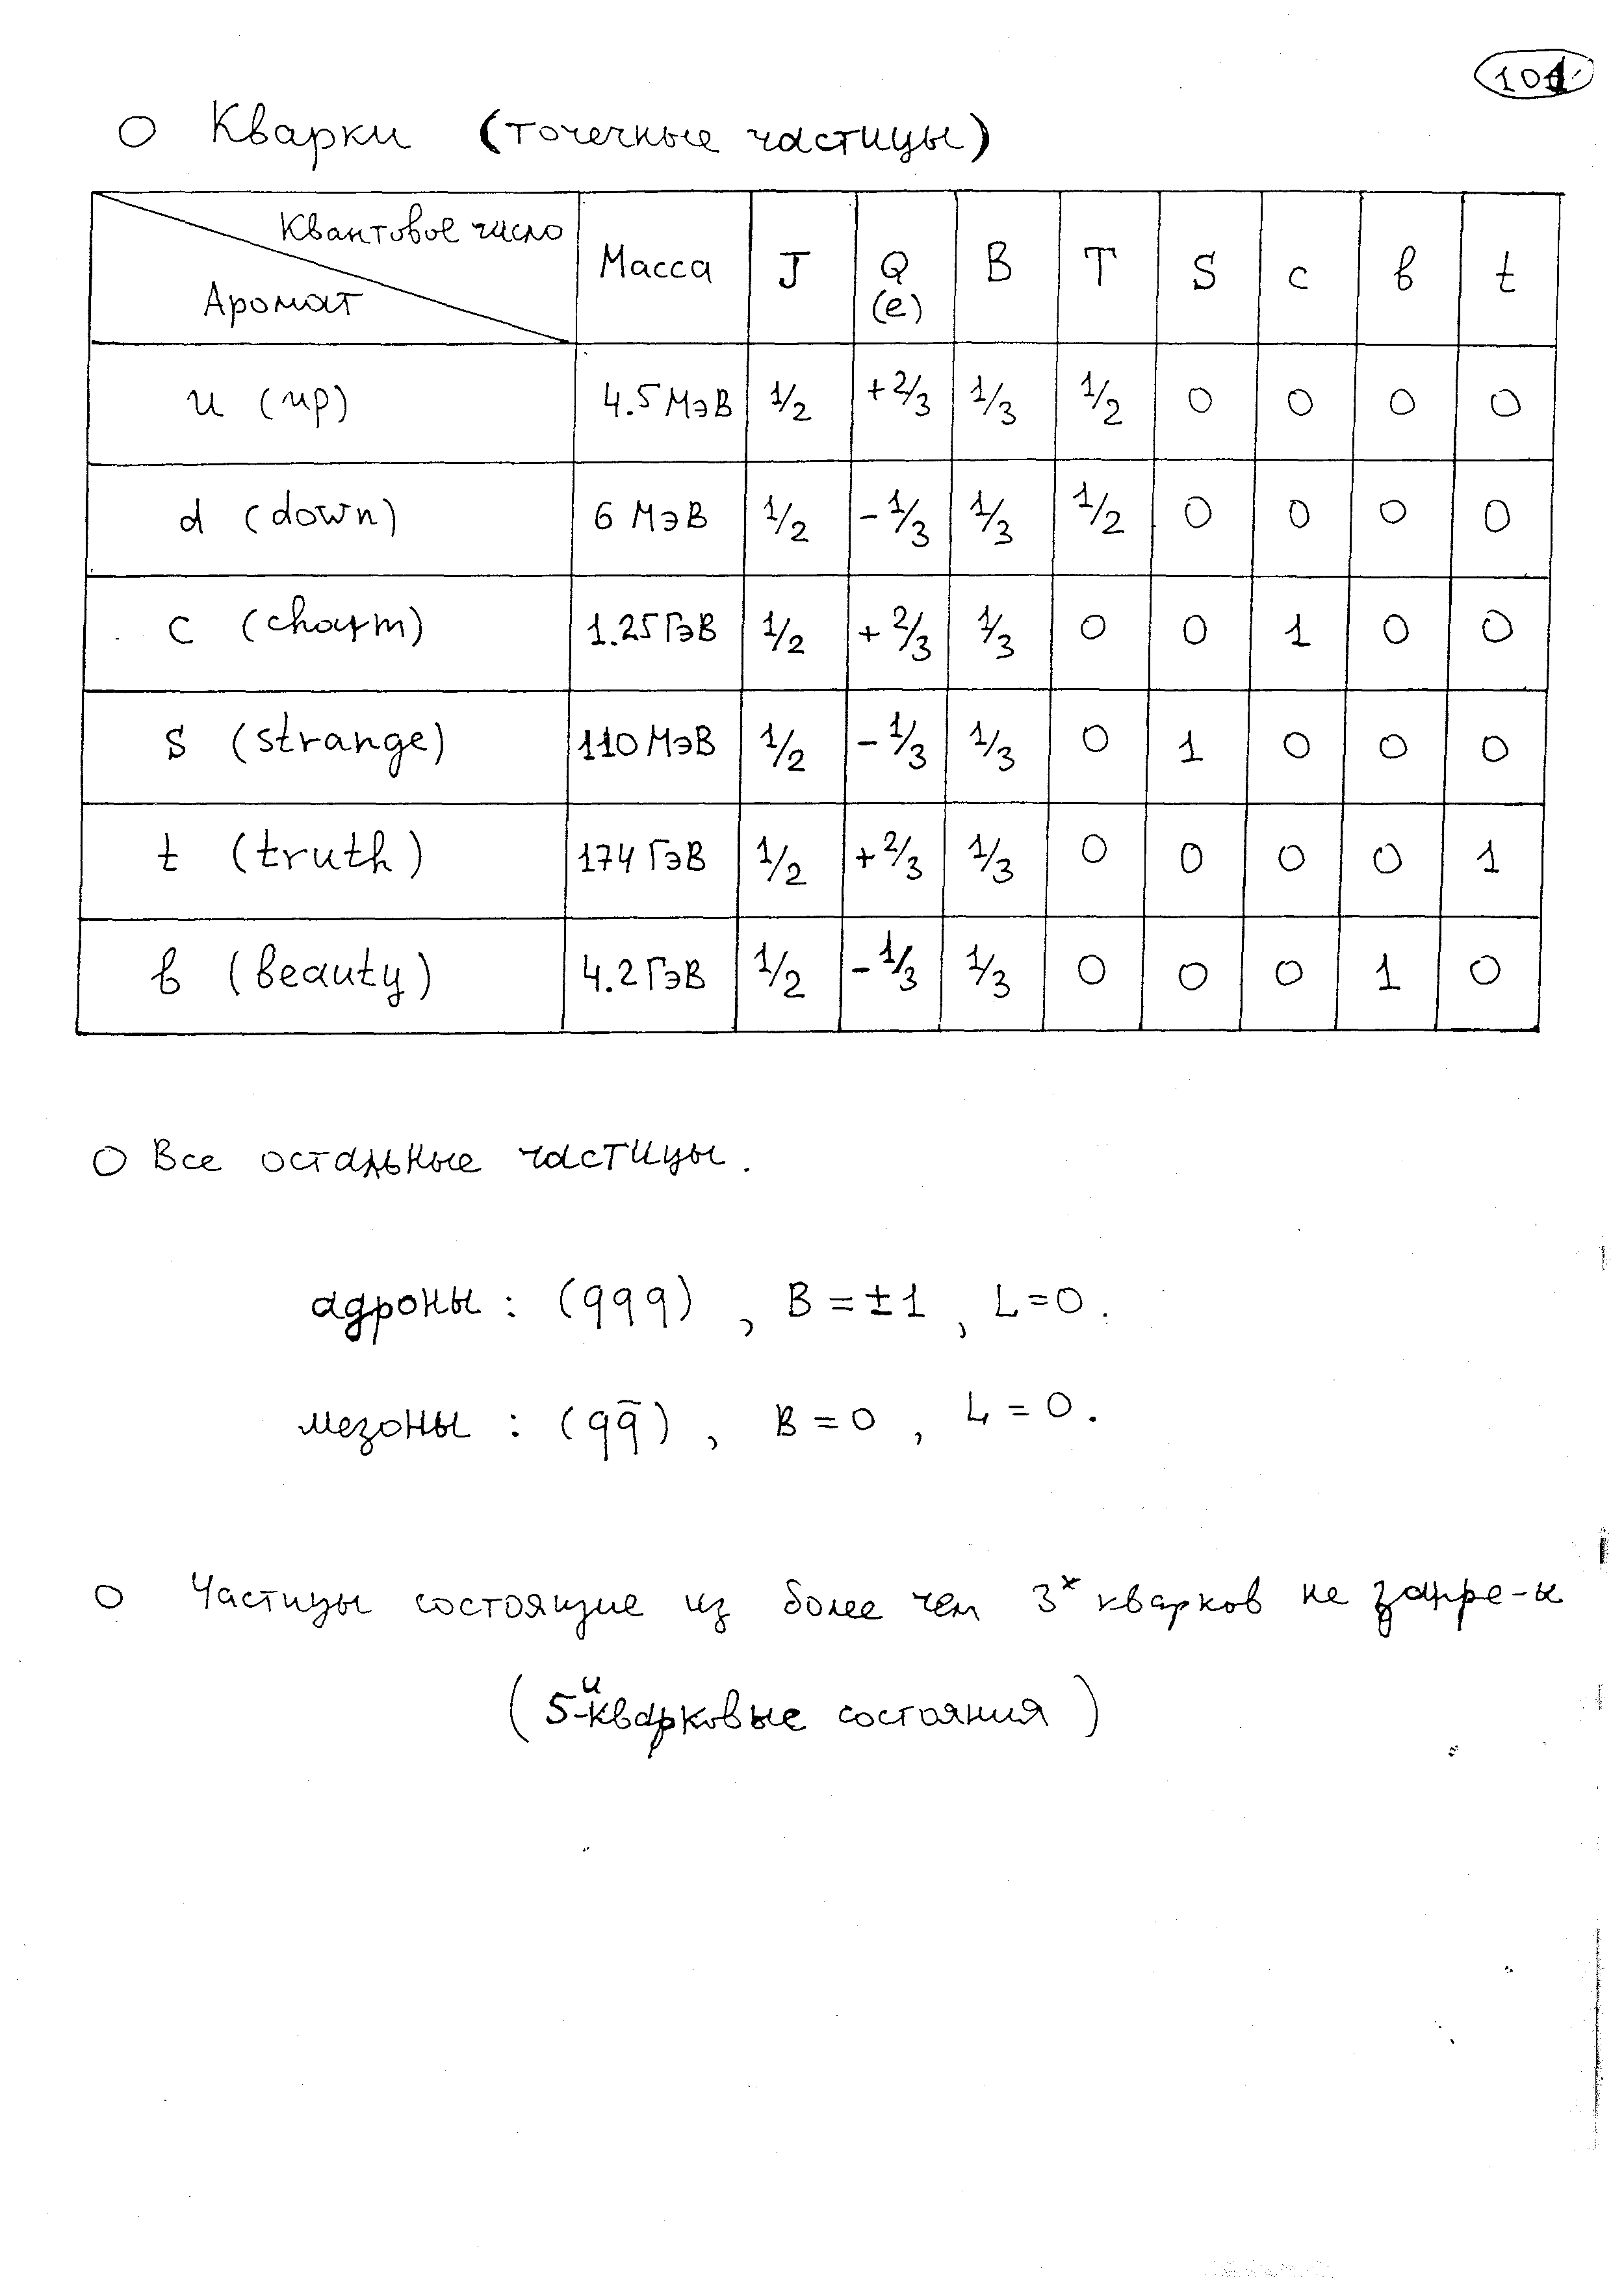 101
○ Кварки (точечные частицы)
Квантовое число
Аромат
Масса J Q (e) B T S c b t
u (up) 4.5 МэВ 1/2 +2/3 1/3 1/2 0 0 0 0
d (down) 6 МэВ 1/2 -1/3 1/3 1/2 0 0 0 0
c (charm) 1.25 ГэВ 1/2 +2/3 1/3 0 0 1 0 0
s (strange) 110 МэВ 1/2 -1/3 1/3 0 1 0 0 0
t (truth) 174 ГэВ 1/2 +2/3 1/3 0 0 0 0 1
b (beauty) 4.2 ГэВ 1/2 -1/3 1/3 0 0 0 1 0
○ Все остальные частицы.
адроны : (qqq) , B = ±1 , L=0.
мезоны : (qq̄) , B = 0 , L = 0.
○ Частицы состоящие из более чем 3ˣ кварков не запре-ы
(5-и кварковые состояния)